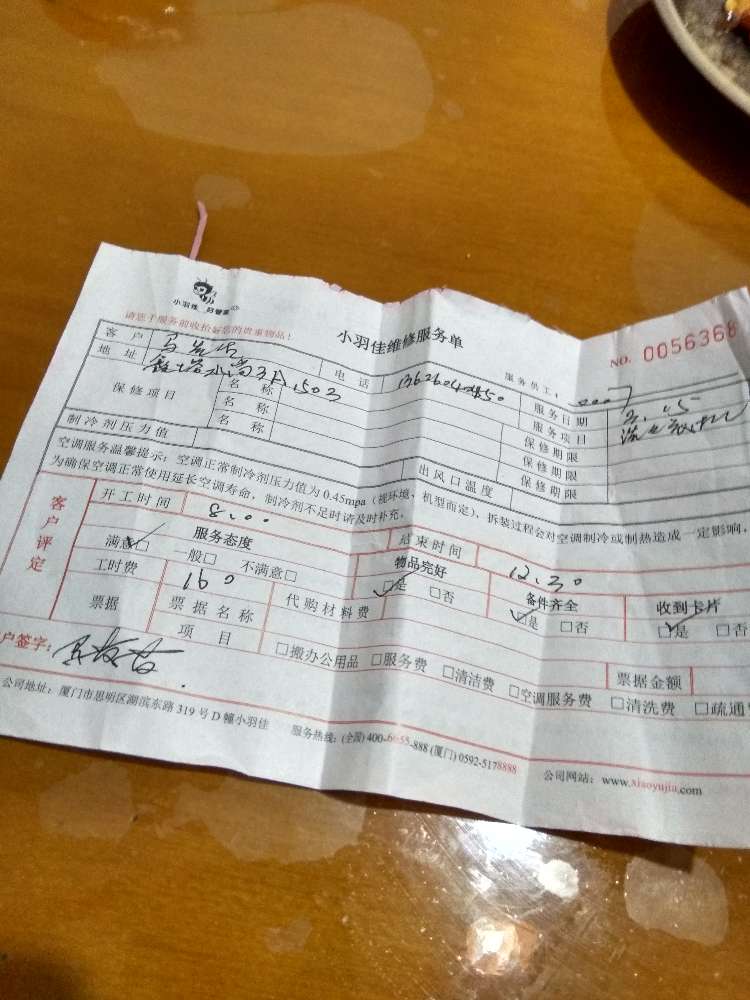 小羽佳 好管家
请您于服务前收拾好您的贵重物品!
小羽佳维修服务单
NO. 0056368
客户 电话 服务员工:
地址 1503 服务日期
保修项目 名称 服务项目
名称 保修期限
名称 保修期限
制冷剂压力值 出风口温度 保修期限
空调服务温馨提示:空调正常制冷剂压力值为0.45mpa(视环境、机型而定),拆装过程会对空调制冷或制热造成一定影响,
为确保空调正常使用延长空调寿命,制冷剂不足时请及时补充。
客户评定
开工时间 8.00 结束时间 12.30
服务态度 物品完好 备件齐全 收到卡片
满意□ 一般□ 不满意□ □是 □否 □是 □否 □是 □否
工时费 160 代购材料费
票据 票据名称 票据金额
项目 □搬办公用品 □服务费 □清洁费 □空调服务费 □清洗费 □疏通
户签字:
公司地址:厦门市思明区湖滨东路319号D幢小羽佳 服务热线:(全国)400-6655-888 (厦门)0592-5178888 公司网站:www.xiaoyujia.com